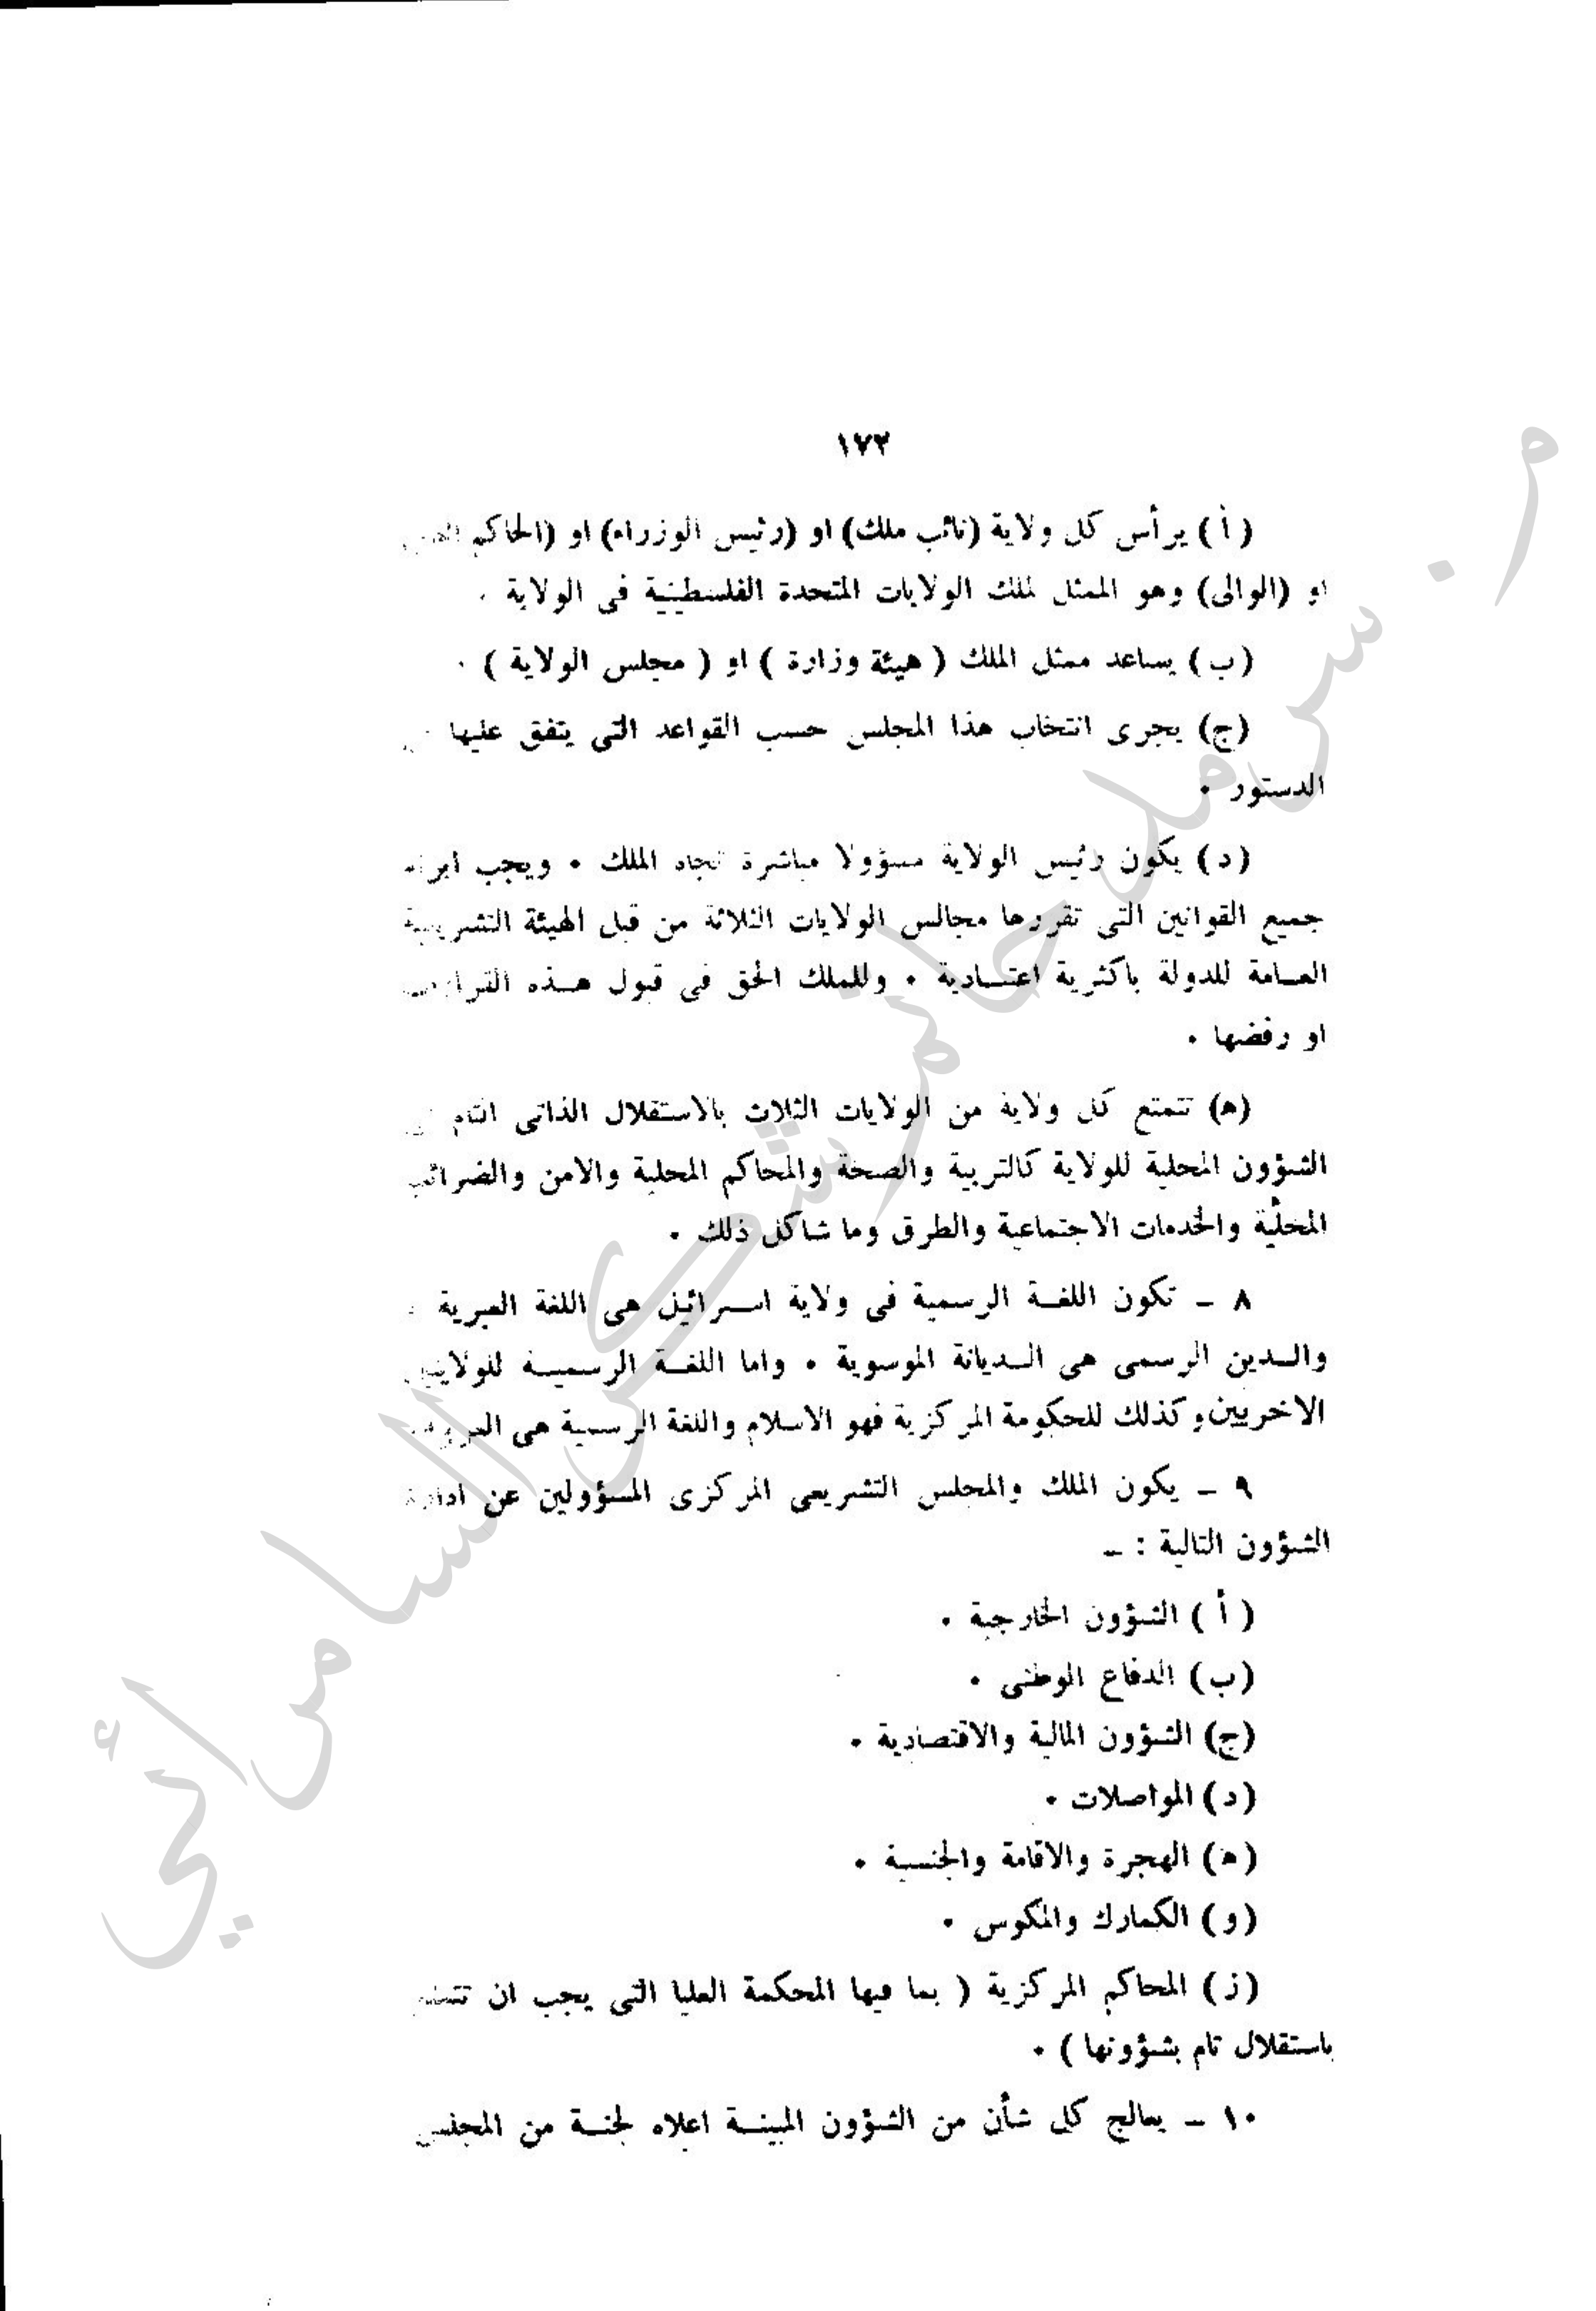 ١٧٢
( أ ) يرأس كل ولاية (نائب ملك) او (رئيس الوزراء) او (الحاكم
او (الوالى) وهو الممثل لملك الولايات المتحدة الفلسطينية فى الولاية .
(ب) يساعد ممثل الملك ( هيئة وزارة ) او ( مجلس الولاية ) .
(ج) يجرى انتخاب هذا المجلس حسب القواعد التى يتفق عليها
الدستور .
(د) يكون رئيس الولاية مسؤولا مباشرة تجاه الملك . ويجب
جميع القوانين التى تقررها مجالس الولايات الثلاثة من قبل الهيئة التشريعية
العـامة للدولة باكثرية اعتـادية . وللملك الحق فى قبول هـذه
او رفضها .
(هـ) تتمتع كل ولاية من الولايات الثلاث بالاستقلال الذاتى التام
الشؤون المحلية للولاية كالتربية والصحة والمحاكم المحلية والامن والضرائب
المحلية والخدمات الاجتماعية والطرق وما شاكل ذلك .
٨ ــ تكون اللغـة الرسمية فى ولاية اسـرائيل هى اللغة العبرية
والـدين الرسمى هى الـديانة الموسوية . واما اللغـة الرسميـة للولايتين
الاخريين وكذلك للحكومة المركزية فهو الاسلام واللغة الرسمية هى
٩ ــ يكون الملك والمجلس التشريعى المركزى المسؤولين عن ادارة
الشؤون التالية : ــ
( أ ) الشؤون الخارجية .
(ب) الدفاع الوطنى .
(ج) الشؤون المالية والاقتصادية .
(د) المواصلات .
(هـ) الهجرة والاقامة والجنسية .
(و) الكمارك والمكوس .
(ز) المحاكم المركزية ( بما فيها المحكمة العليا التى يجب ان
باستقلال تام بشؤونها ) .
١٠ ــ يعالج كل شأن من الشؤون المبينـة اعلاه لجنـة من المجلس
م. سرمد حاتم شكر السامرائي